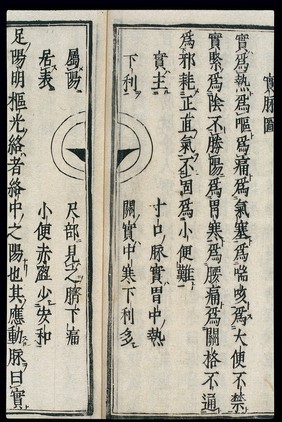 實脉圖
實爲熱爲嘔爲痛爲氣塞爲喘咳爲大便不禁
實緊爲陰不勝陽爲胃寒爲腰痛爲關格不通
爲邪耗正直氣不固爲小便難
實主 寸口脉實胃中熱
下利 關實中寒下利多
屬陽 尺部見之臍下痛
居表 小便赤澀少安和
足陽明樞光絡者絡中之陽也其應動脉曰實